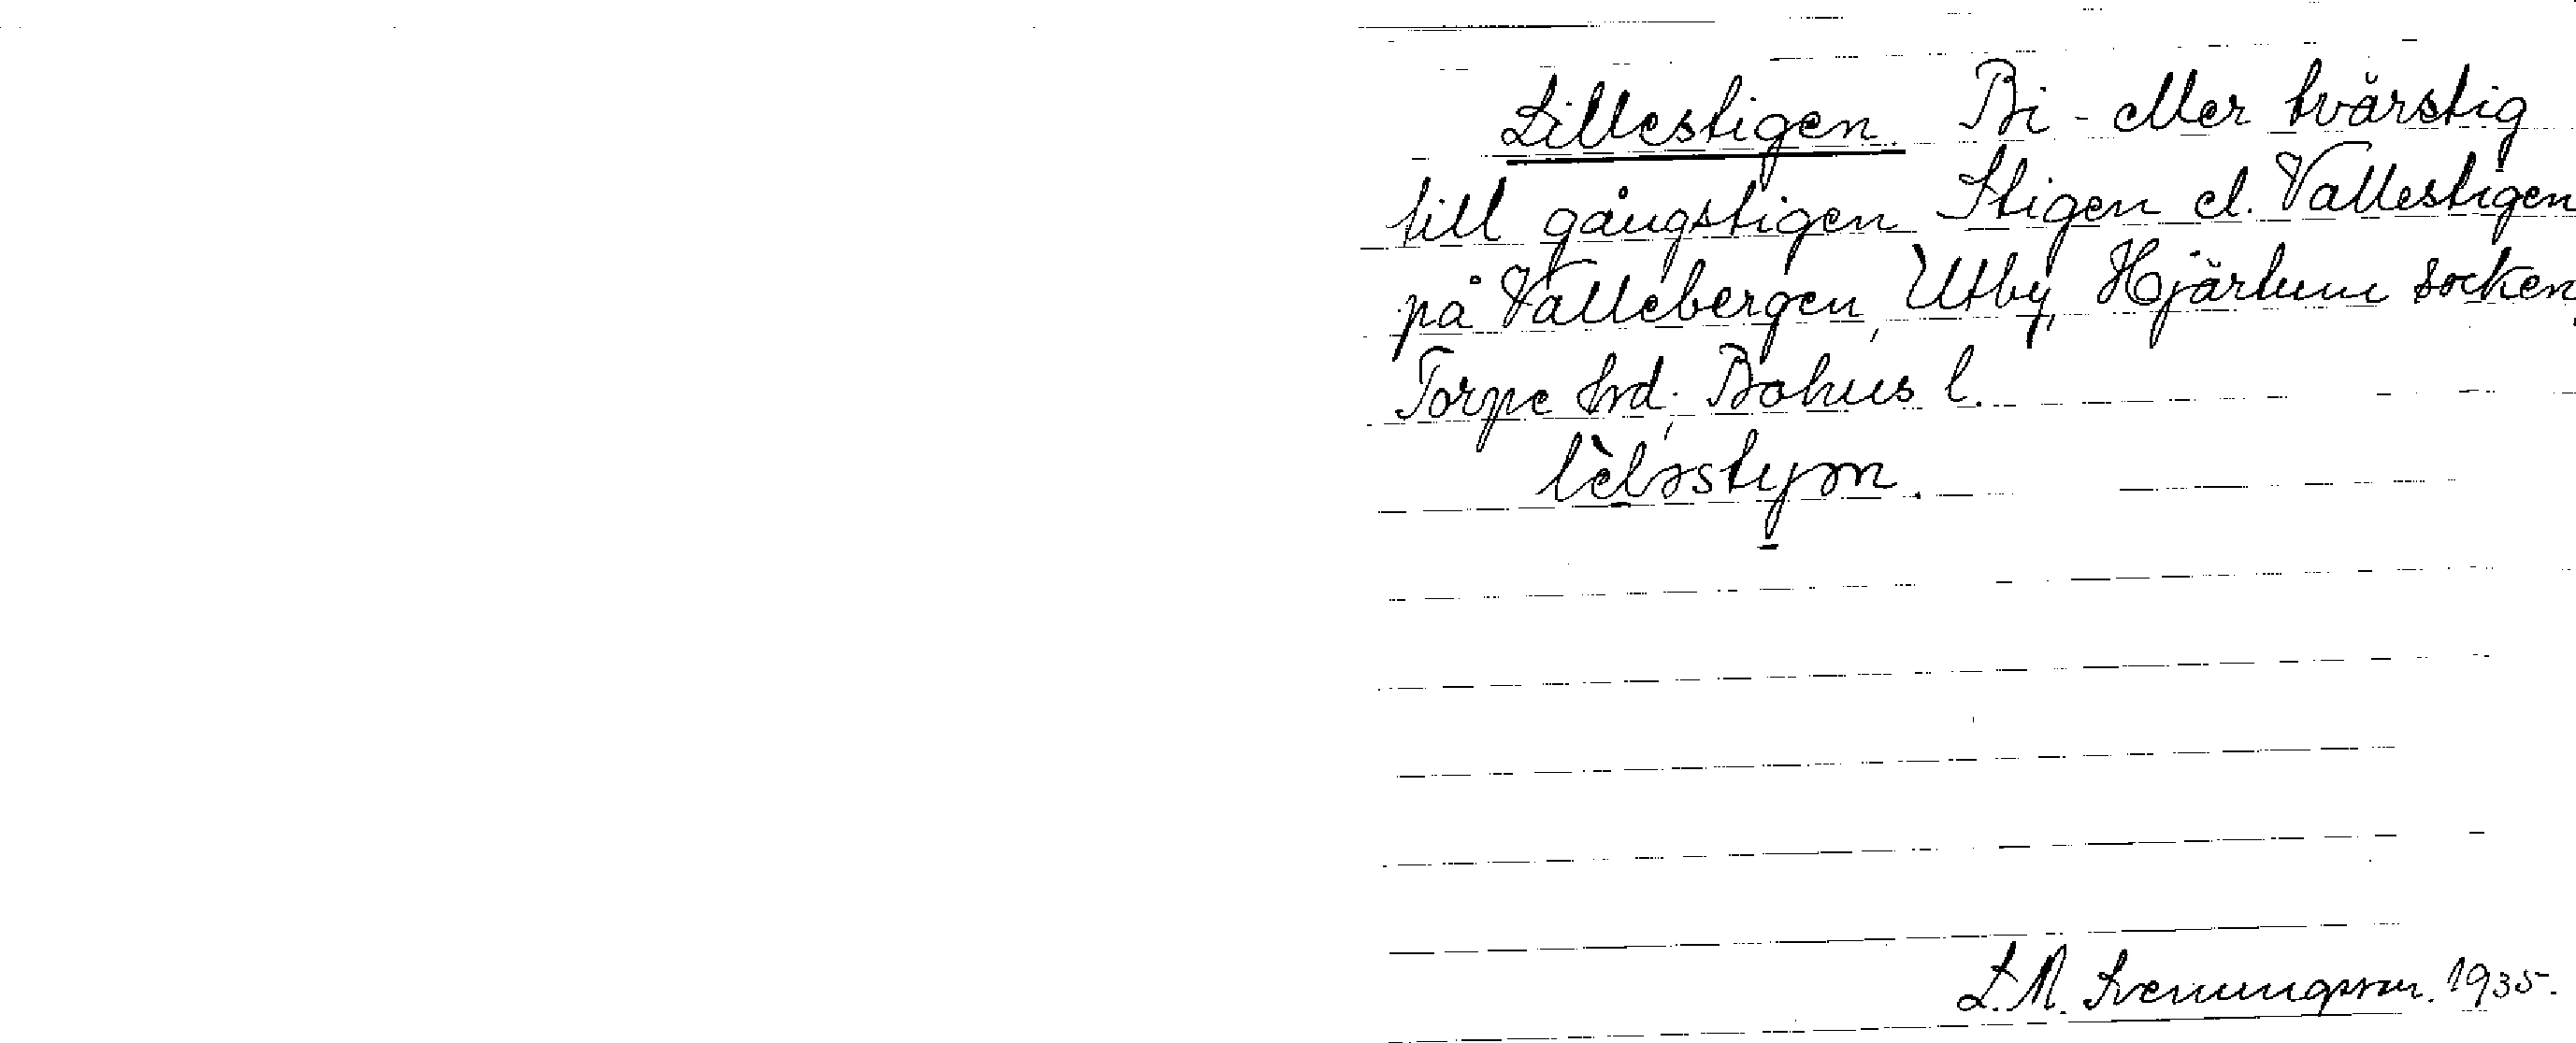 Lillestigen. Bi- eller tvärstig
till gångstigen Stigen el. Vallestigen
på Vallebergen, Utby, Hjärtum socken,
Torpe hrd, Bohus l.
L. M. Svenungsson. 1935.